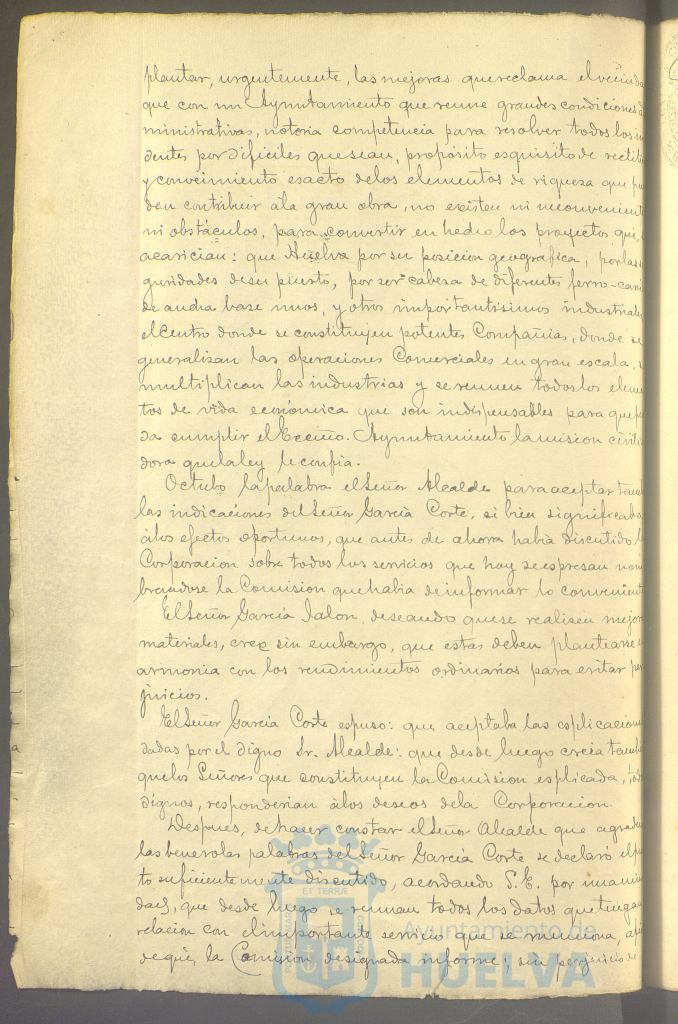 plantar, urgentemente, las mejoras que reclama el vecinda
que con un Ayuntamiento que reune grandes condiciones a
ministrativas, notoria competencia para resolver todos los in
dentes por dificiles que sean, propósito esquisito de rectitu
y conocimiento esacto de los elementos de riqueza que pu
den contribuir á la gran obra, no existen ni inconvenient
ni obstáculos, para convertir en hecho los proyectos que,
acarician: que Huelva por su posicion geografica, por las se
guridades de su puerto, por ser cabeza de diferentes ferro-carri
de ancha base unos, y otros importantisimos industriale
el Centro donde se constituyen potentes Compañias, donde se
generalizan las operaciones Comerciales en gran escala, s
multiplican las industrias y se reunen todos los elemen
tos de vida económica que son indispensables para que pu
da cumplir el Excmo. Ayuntamiento la mision civiliza
dora que la ley le confia.
Octubo la palabra el Señor Alcalde para aceptar tamb
las indicaciones del Señor García Corte, si bien significaba
á los efectos oportunos, que antes de ahora habia discutido l
Corporacion sobre todos los servicios que hoy se espresan nom
brandose la Comision que habia de informar lo convenient
El Señor García Jalon, deseando que se realisen mejor
materiales, cree sin embargo, que estas deben plantearse e
armonia con los rendimientos ordinarios para evitar per
juicios.
El Señor García Corte espuso: que aceptaba las esplicacione
dadas por el digno Sr. Alcalde: que desde luego creia tamb
que los Señores que constituyen la Comision esplicada, tod
dignos, responderian á los deseos de la Corporacion.
Despues, de hacer constar el Señor Alcalde que agrade
las benevolas palabras del Señor García Corte se declaró el pu
to suficientemente discutido, acordando S.E. por unanimi
dad, que desde luego se reunan todos los datos que tengan
relacion con el importante servicio que se menciona, afi
de que la Comision designada informe; sin perjuicio de
ET TERRÆ
Ayuntamiento de
HUELVA